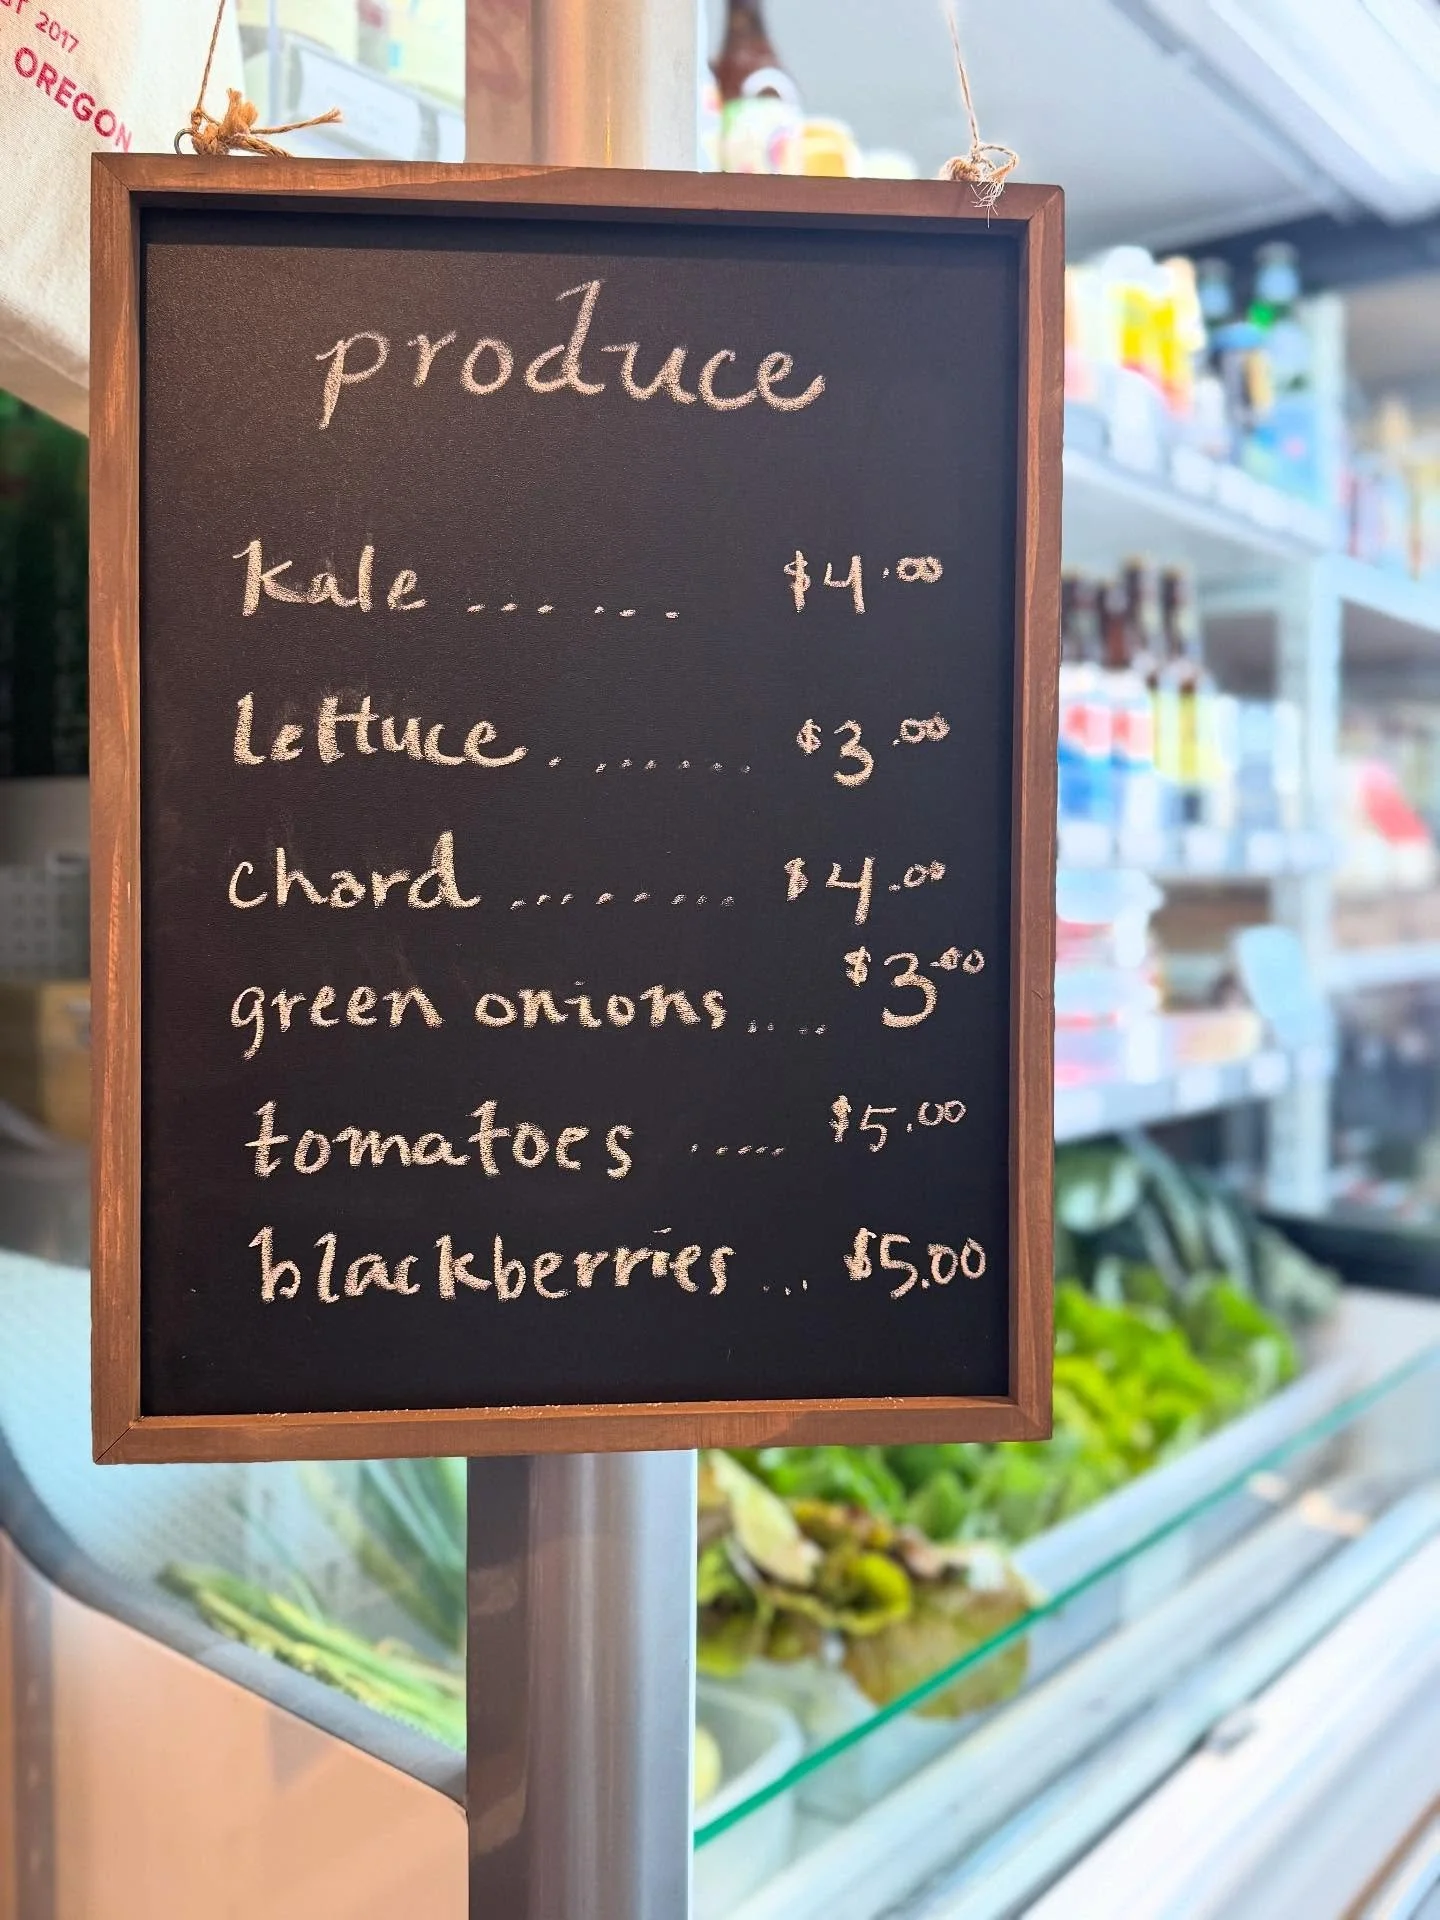 ST 2017
OREGON
produce
kale ... ... $4.00
lettuce. ....... $3.00
chard ......... $4.00
green onions.... $3.00
tomatoes ..... $5.00
blackberries ... $5.00